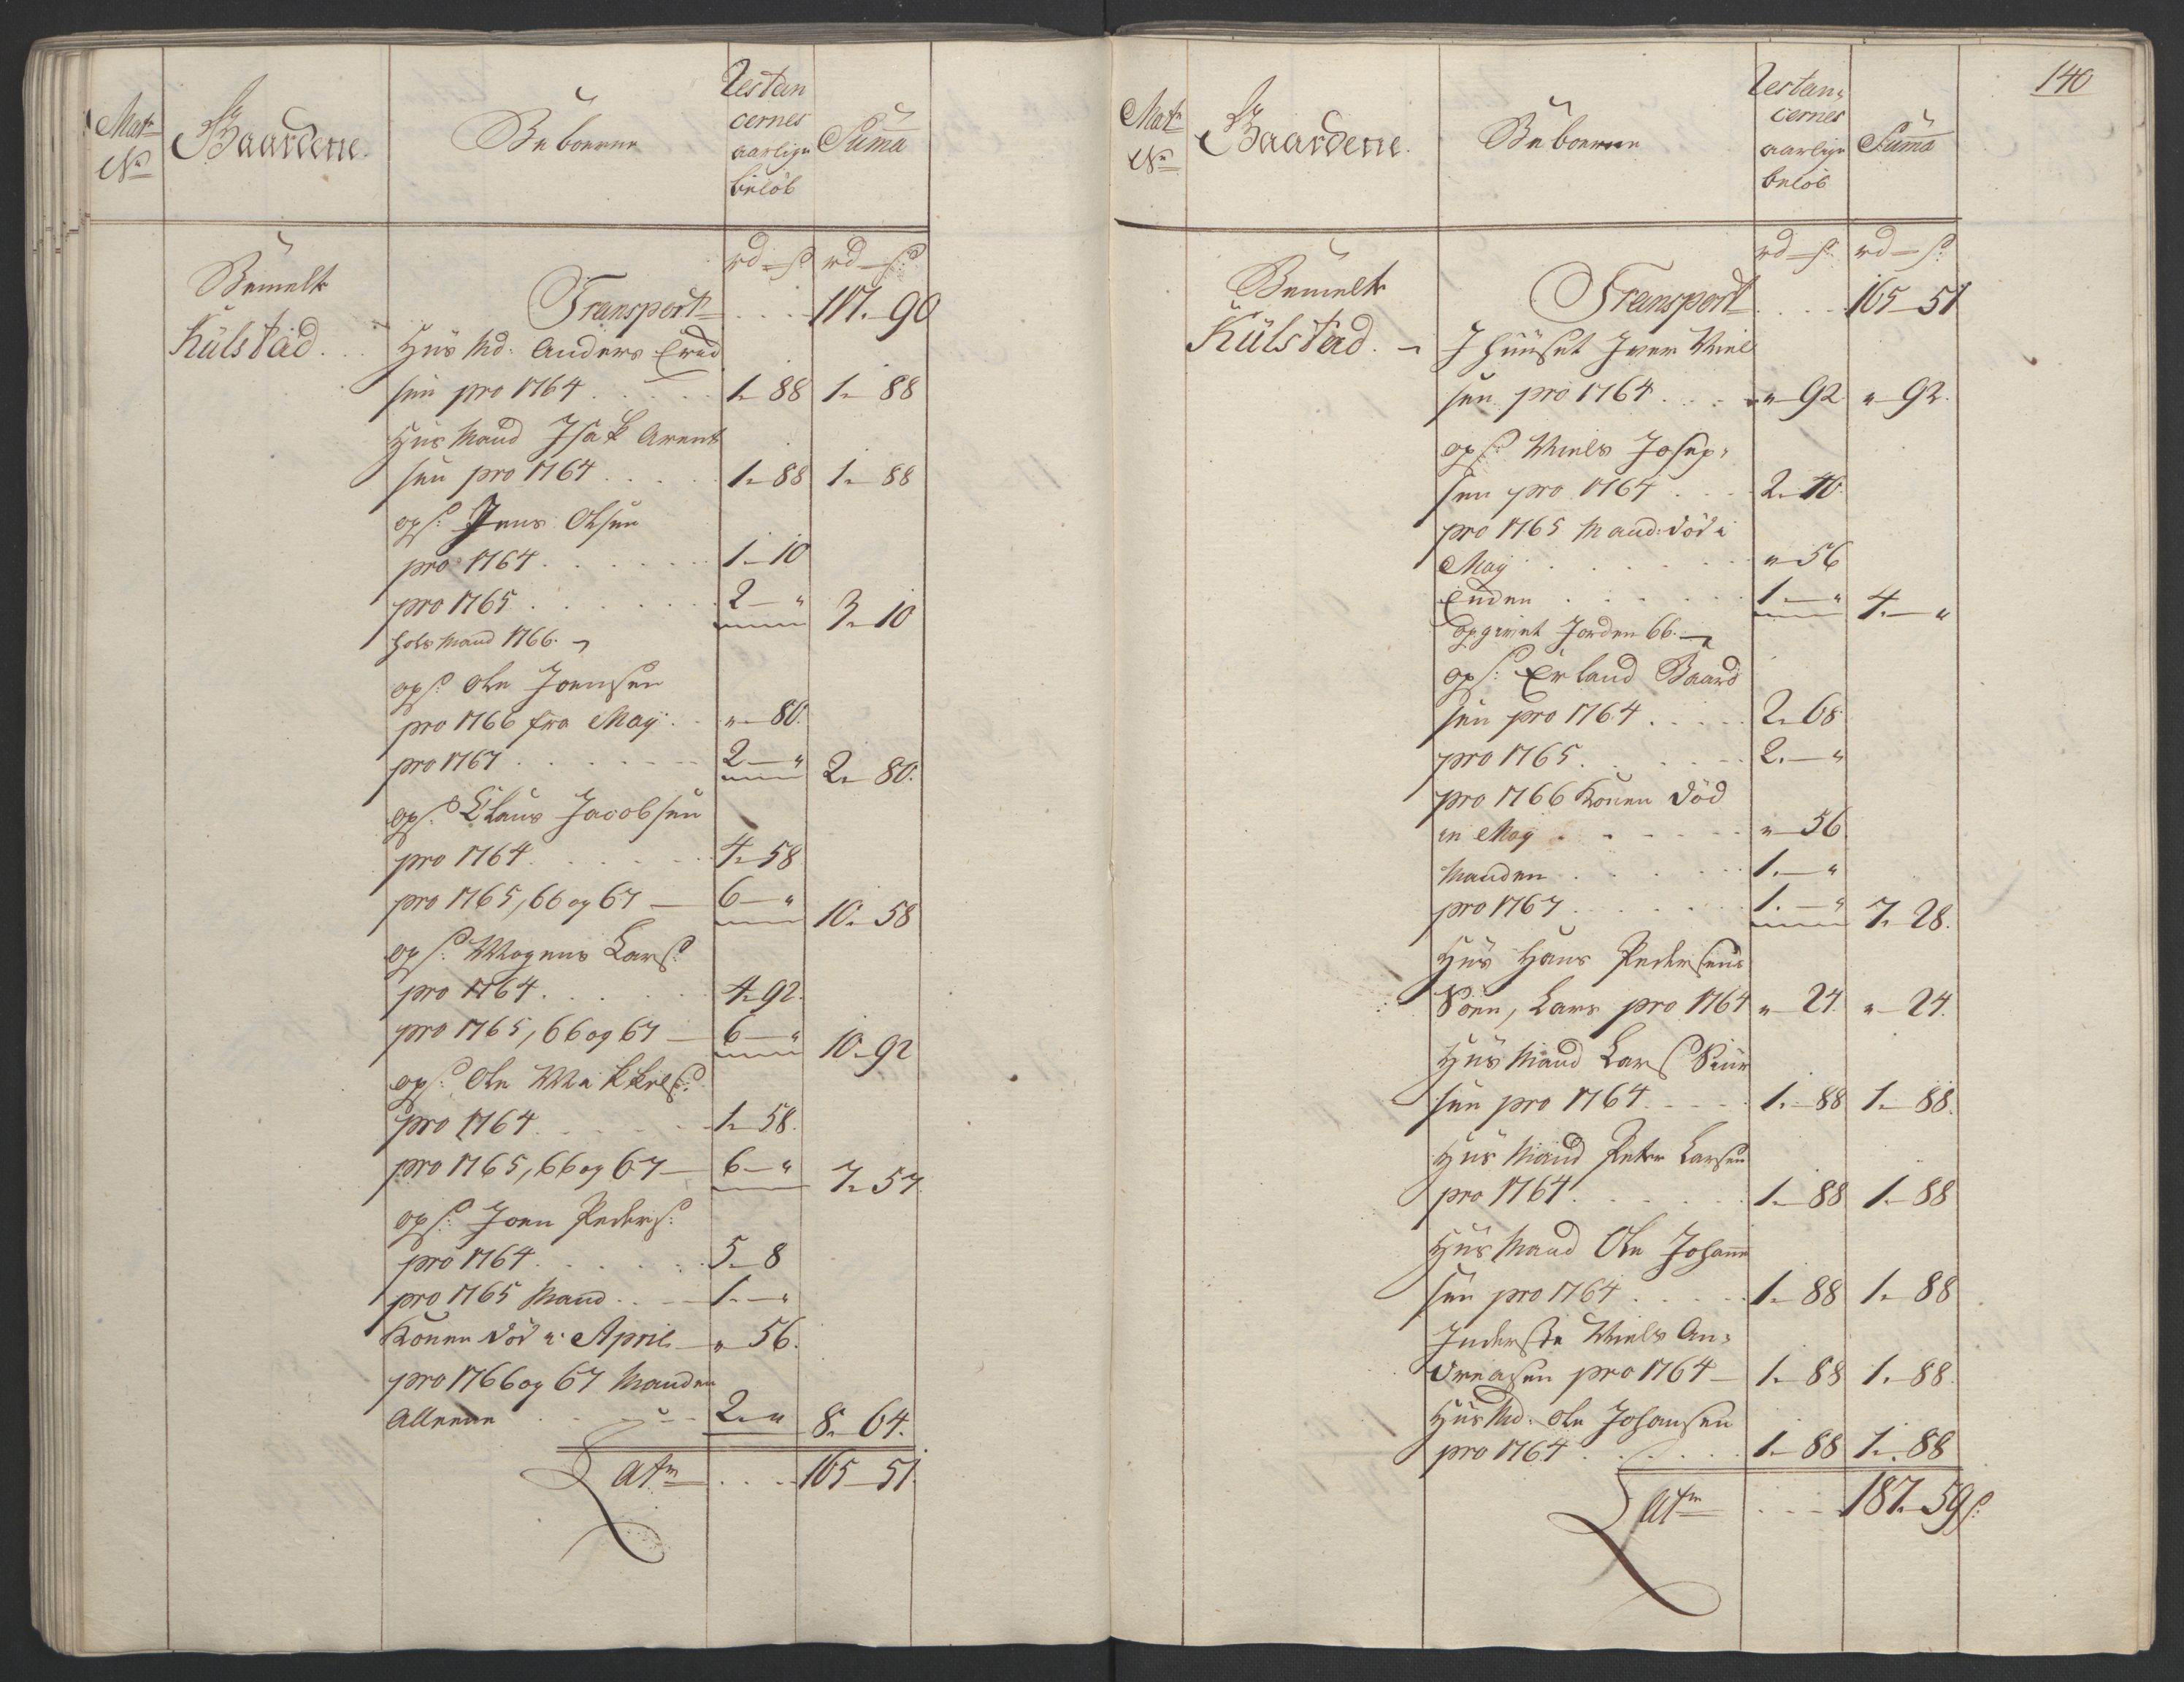 Matr
No
Gaarderne.
Beboerne
Restan
cernes
aarlige
beløb
Suma
rd - s
rd - s
Bemelte
Kulstad . .
Transport . . . 117. 90
Huusmd: Anders Erich
sen pro 1764 . . . . . 1. 88 1. 88
Huusmand Isak Arent
sen pro 1764 . . . . . 1. 88 1. 88
ops: Jens Olsen
pro 1764 . . . . . . 1. 10
pro 1765 . . . . . . 2 — " 3. 10
Holsmand 1766.
ops: Ole Joensen
pro 1766 fra Maÿ . . " 80.
pro 1767 . . . . . . 2 — " 2. 80.
ops: Claus Jacobsen
pro 1764 . . . . . . 4. 58
pro 1765, 66 og 67 — 6 — " 10. 58
ops: Mogens Lars:
pro 1764 . . . . . . 4. 92.
pro 1765, 66 og 67 — 6 — " 10. 92
ops: Ole Mikkels:
pro 1764 . . . . . . 1. 58.
pro 1765, 66 og 67 — 6 — " 7. 57.
ops: Joen Peders:
pro 1764 . . . . . . 5. 8
pro 1765 Mand . . . 1. — "
Konen død i April — " 56.
pro 1766 og 67 Manden
Alleene . . . . 2. " 8. 64.
At . . . . 165 — 51.
140
Matr
No
Gaarderne.
Beboerne
Restan,
cernes
aarlige
beløb
Suma
rd — s
rd — s
Bemelte
Kulstad.
Transport . . . 165 — 51
I Huuset Iver Niel
sen pro 1764 . . . " 92 " 92.
ops: Niels Josep,
sen pro 1764 . . . 2. 40.
pro 1765 Mand: død i
Maÿ . . . . . . " 56
Enken . . . . . 1. — " 4. — "
Opgivet Jorden 66.
ops: Erland Baard
sen pro 1764 . . . . 2. 68
pro 1765 . . . . . 2. — "
pro 1766 Konen død
in Maÿ . . . . . " 56
Manden . . . . . 1. — "
pro 1767 . . . . . 1. — " 7. 28.
Huus Hans Pedersens
Søn, Lars pro 1764 " 24. " 24.
Huusmand Lars Siur
sen pro 1764 . . . . 1. 88 1. 88.
Huusmand Peter Larsen
pro 1764 . . . . . . 1. 88 1. 88
Huusmand Ole Johann
sen pro 1764 . . . . 1. 88 1. 88
Inderste Niels An,
dreasen pro 1764 — 1. 88 1. 88.
Huusmd: Ole Johansen
pro 1764 . . . . . . 1. 88 1. 88
At . . . . 187. 59 s: